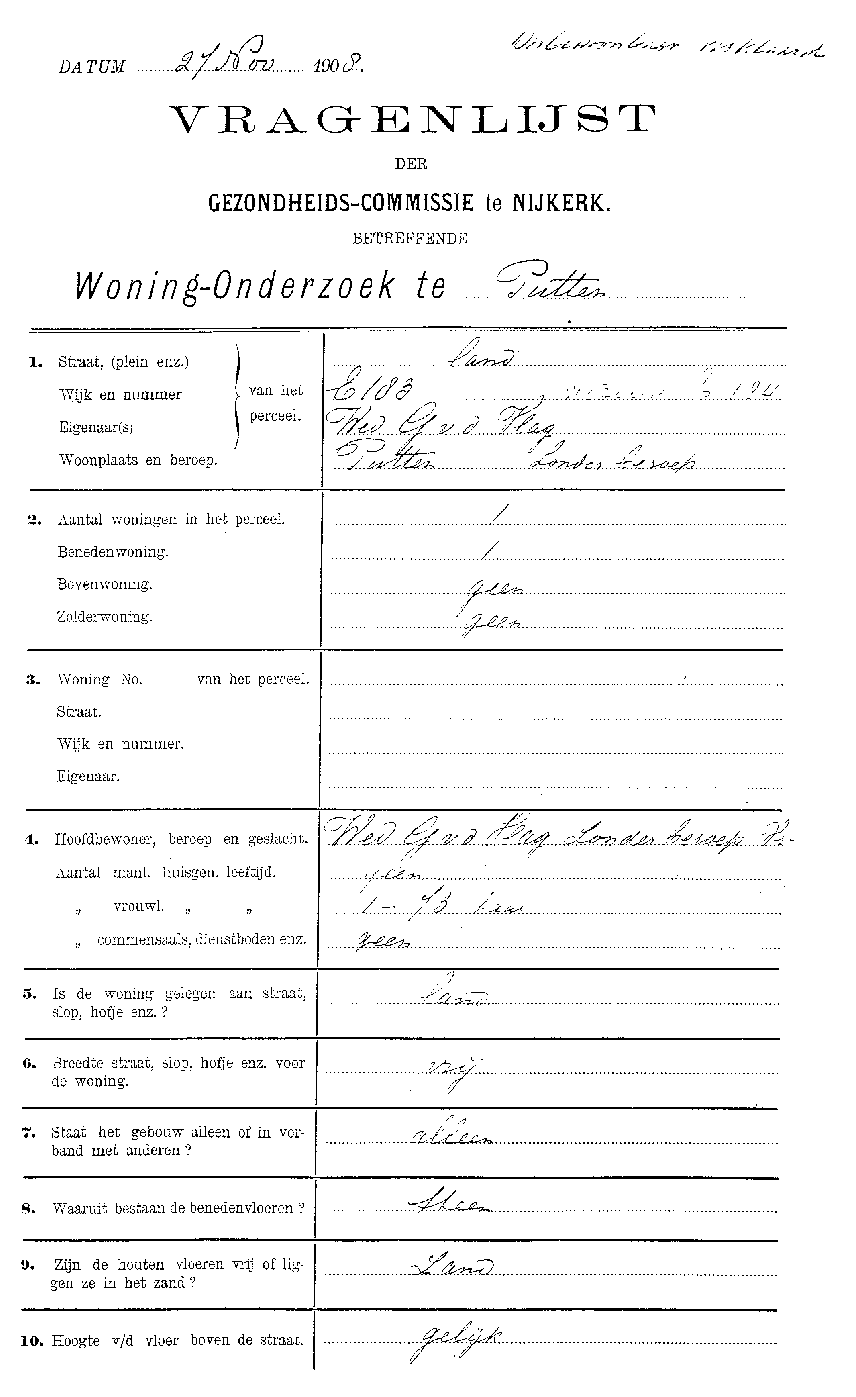 Onbewoonbaar verklaard
DATUM 27 Nov 1908.
VRAGENLIJST
DER
GEZONDHEIDS-COMMISSIE te NIJKERK.
BETREFFENDE
Woning-Onderzoek te Putten
1. Straat, (plein enz.) land
Wijk en nummer van het E 183
Eigenaar(s) perceel. Wed G v d Hag
Woonplaats en beroep. Putten Zonder beroep
2. Aantal woningen in het perceel. 1
Benedenwoning. 1
Bovenwoning. geen
Zolderwoning. geen
3. Woning No. van het perceel.
Straat.
Wijk en nummer.
Eigenaar.
4. Hoofdbewoner, beroep en geslacht. Wed G v d Hag Zonder beroep
Aantal manl. huisgen. leeftijd. geen
„ vrouwl. „ „ 1 - 73 jaar
„ commensaals, dienstboden enz. geen
5. Is de woning gelegen aan straat, land
slop, hofje enz.?
6. Breedte straat, slop, hofje enz. voor vrij
de woning.
7. Staat het gebouw alleen of in ver- alleen
band met anderen?
8. Waaruit bestaan de benedenvloeren? Steen
9. Zijn de houten vloeren vrij of lig- Zand
gen ze in het zand?
10. Hoogte v/d vloer boven de straat. gelijk